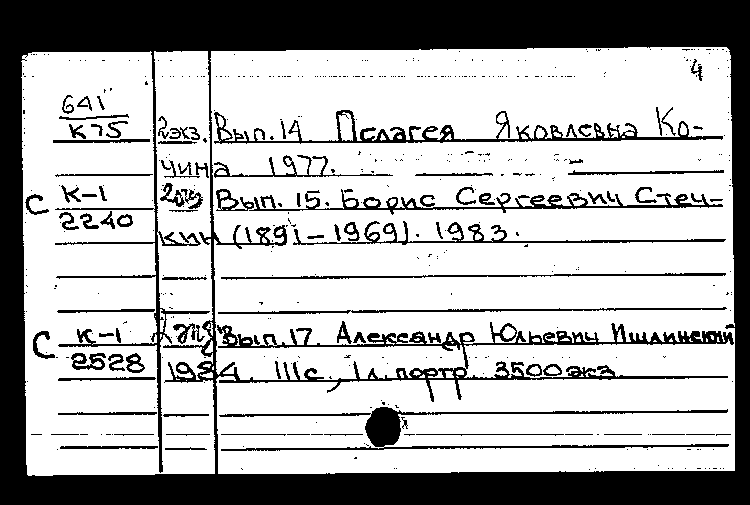 4
641
К75 2экз. Вып. 14. Пелагея Яковлевна Ко-
чина. 1977.
С К-1 2экз Вып. 15. Борис Сергеевич Стеч-
2240 кин (1891-1969). 1983.
С К-1 2экз Вып. 17. Александр Юльевич Ишлинский
2528 1984. 111с., 1 л. портр. 3500 экз.